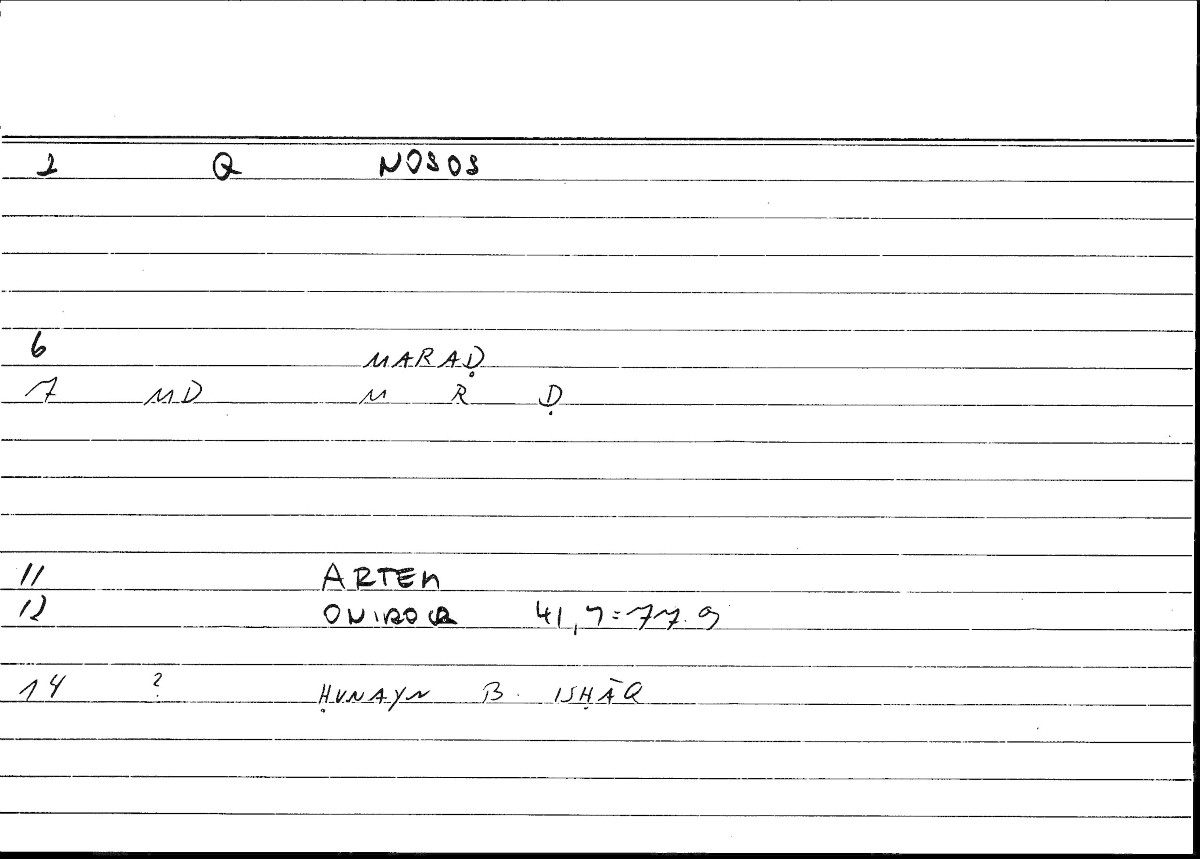 1 Q NOSOS
6 MARAḌ
7 MD M R Ḍ
11 ARTEM
12 ONIROCR 41,7=77.9
14 ? ḤUNAYN B. ISḤĀQ